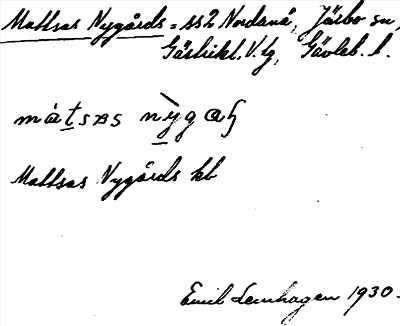 Mattsas Nygårds = ss2 Nordanå, Järbo sn,
Gästrikl. V. tg, Gävleb. l.
mátsas nỳgaɧ
Mattsas Nygårds kb
Emil Lenhagen 1930.